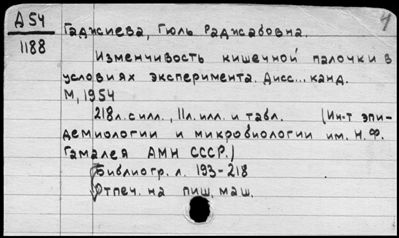 Д 54
1188
Гаджиева, Гюль Раджабовна.
Изменчивость кишечной палочки в
условиях эксперимента. Дисс... канд.
М, 1954
218 л. с илл., 11 л. илл. и табл. (Ин-т эпи-
демиологии и микробиологии им. Н.Ф.
Гамалея АМН СССР.)
Библиогр. л. 193-218
Отпеч. на пиш. маш.